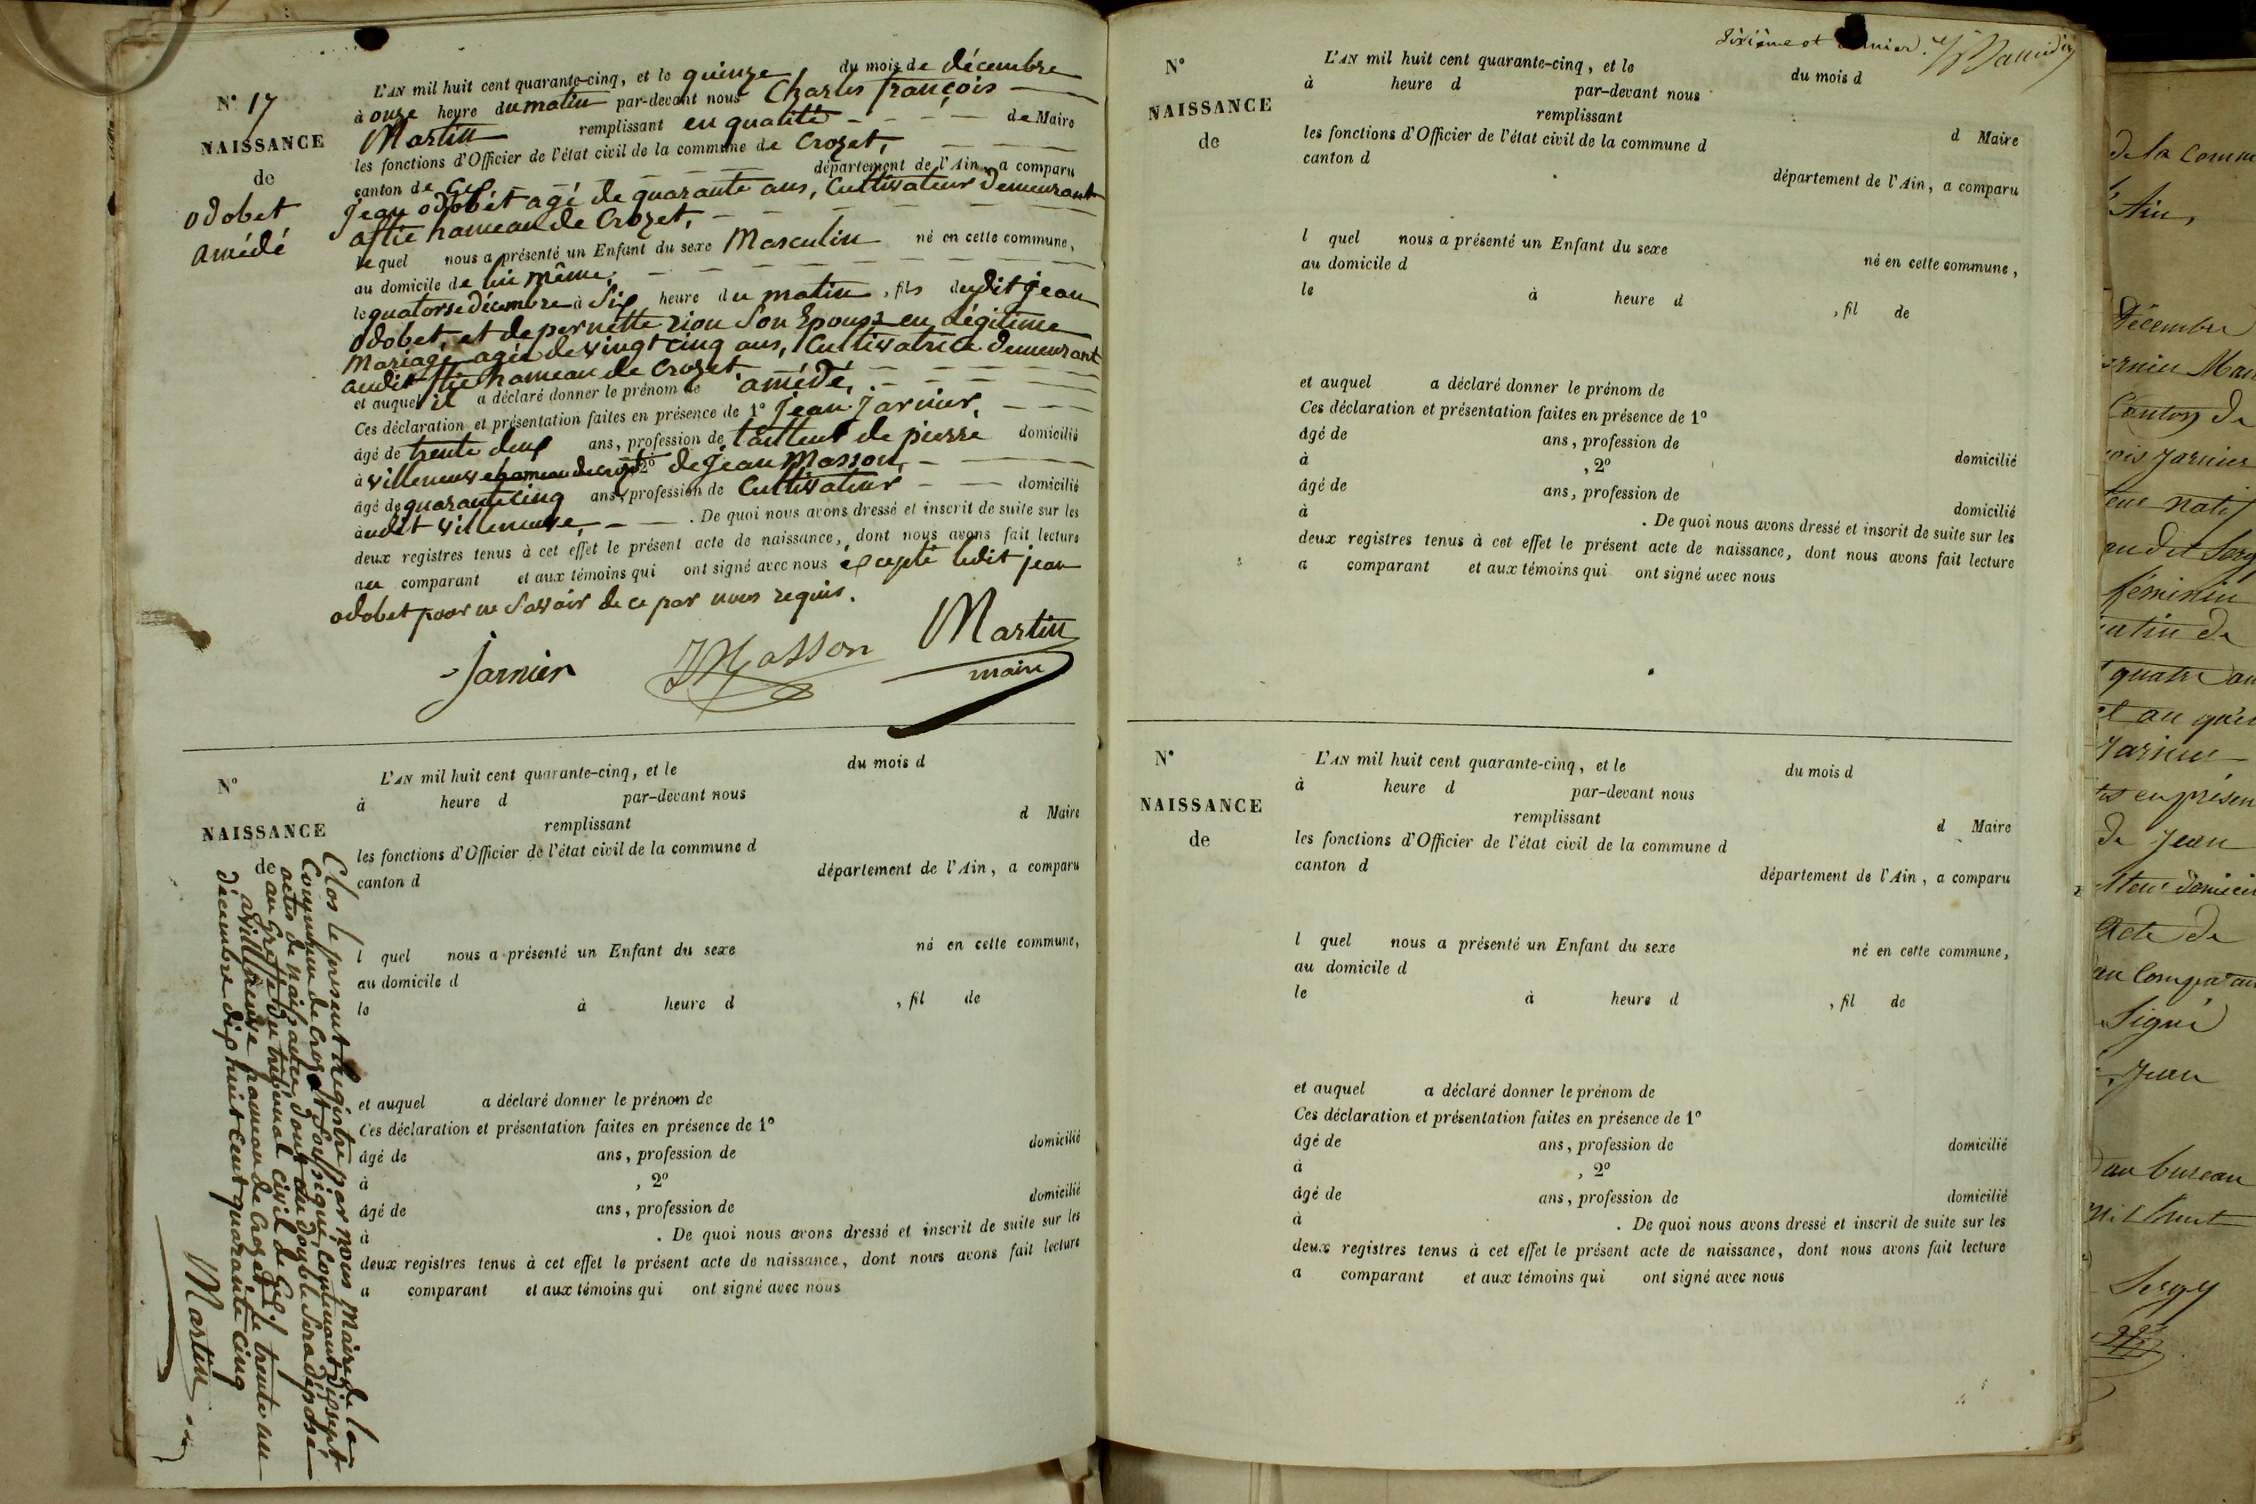 N° 17
NAISSANCE
de
odobet
amédé
L'AN mil huit cent quarante-cinq, et le quinze du mois de décembre
à onze heure du matin par-devant nous Charles françois
Martin remplissant en qualité de Maire
les fonctions d'Officier de l'état civil de la commune de Crozet,
canton de Gex département de l'Ain, a comparu
jean odobet agé de quarante ans, Cultivateur demeurant
hameau de Crozet,
lequel nous a présenté un Enfant du sexe Masculin né en cette commune,
au domicile de lui même,
le quatorse décembre à Six heure du matin, fils dudit jean
odobet, et de pernette rion Son Epouse en Légitime
Mariage agée de vingt cinq ans, Cultivatrice demeurant
audit hameau de Crozet
et auquel il a déclaré donner le prénom de amédé,
Ces déclaration et présentation faites en présence de 1° Jean Jarnier,
âgé de trente deux ans, profession de tailleur de pierre domicilié
à villeneuve hameau de crozet 2° de Jean Masson,
âgé de quarante cinq ans, profession de Cultivateur domicilié
audit villeneuve, . De quoi nous avons dressé et inscrit de suite sur les
deux registres tenus à cet effet le présent acte de naissance, dont nous avons fait lecture
au comparant et aux témoins qui ont signé avec nous excepté ledit jean
odobet pour ne Savoir de ce par nous requis.
Jarnier JMasson Martin
maire
N°
NAISSANCE
de
L'AN mil huit cent quarante-cinq, et le du mois d
à heure d par-devant nous
remplissant d Maire
les fonctions d'Officier de l'état civil de la commune d
canton d département de l'Ain, a comparu
l quel nous a présenté un Enfant du sexe né en cette commune,
au domicile d
le à heure d , fil de
et auquel a déclaré donner le prénom de
Ces déclaration et présentation faites en présence de 1°
âgé de ans, profession de domicilié
à , 2°
âgé de ans, profession de domicilié
à . De quoi nous avons dressé et inscrit de suite sur les
deux registres tenus à cet effet le présent acte de naissance, dont nous avons fait lecture
a comparant et aux témoins qui ont signé avec nous
Clos le present Registre par nous Maire de la
Commune de Crozet Soussigné, contenant dix sept
actes de naissance, dont un double Sera déposé
au Greffe du tribunal civil de Gex,
a villeneuve hameau de Crozet le trente un
décembre dix huit cent quarante cinq
Martin
dixième et dernier.
N°
NAISSANCE
de
L'AN mil huit cent quarante-cinq, et le du mois d
à heure d par-devant nous
remplissant d Maire
les fonctions d'Officier de l'état civil de la commune d
canton d département de l'Ain, a comparu
l quel nous a présenté un Enfant du sexe né en cette commune,
au domicile d
le à heure d , fil de
et auquel a déclaré donner le prénom de
Ces déclaration et présentation faites en présence de 1°
âgé de ans, profession de domicilié
à , 2°
âgé de ans, profession de domicilié
à . De quoi nous avons dressé et inscrit de suite sur les
deux registres tenus à cet effet le présent acte de naissance, dont nous avons fait lecture
a comparant et aux témoins qui ont signé avec nous
N°
NAISSANCE
de
L'AN mil huit cent quarante-cinq, et le du mois d
à heure d par-devant nous
remplissant d Maire
les fonctions d'Officier de l'état civil de la commune d
canton d département de l'Ain, a comparu
l quel nous a présenté un Enfant du sexe né en cette commune,
au domicile d
le à heure d , fil de
et auquel a déclaré donner le prénom de
Ces déclaration et présentation faites en présence de 1°
âgé de ans, profession de domicilié
à , 2°
âgé de ans, profession de domicilié
à . De quoi nous avons dressé et inscrit de suite sur les
deux registres tenus à cet effet le présent acte de naissance, dont nous avons fait lecture
a comparant et aux témoins qui ont signé avec nous
de la comm
Ain,
Décembre
Canton de
Jarnier
natif
au dit Serg
féminin
de
quatre an
Jarnier
en présen
de Jean
Acte de
au Compa
Signé
Jean
au bureau
Sergy